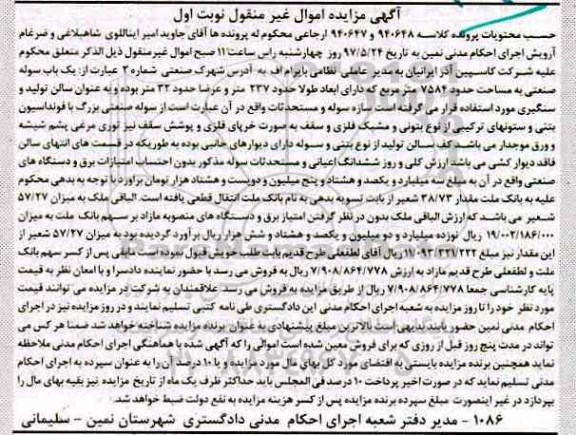 آگهی مزایده اموال غیر منقول نوبت اول
حسب محتویات پرونده کلاسه ۹۴۰۶۴۸ و ۹۴۰۶۴۷ ارجاعی محکوم له پرونده ها آقای جاوید امیر ایناللوی شاهبلاغی و ضرغام
آرویش اجرای احکام مدنی نمین به تاریخ ۹۷/۵/۲۴ روز چهارشنبه راس ساعت ۱۱ صبح اموال غیرمنقول ذیل الذکر متعلق محکوم
علیه شرکت کاسپین آذر ایرانیان به مدیر عاملی نظامی بایرام اف به آدرس شهرک صنعتی شماره ۲ عبارت از: یک باب سوله
صنعتی به مساحت حدود ۷۵۸۴ متر مربع که دارای ابعاد طولا حدود ۲۳۷ متر و عرضا حدود ۳۲ متر بوده و به عنوان سالن تولید و
سنگبری مورد استفاده قرار می گرفته است سازه سوله و مستحدثات واقع در آن عبارت است از سوله صنعتی بزرگ با فونداسیون
بتنی و ستونهای ترکیبی از نوع بتونی و مشبک فلزی و سقف به صورت خرپای فلزی و پوشش سقف نیز توری مرغی پشم شیشه
و ورق موجدار می باشد کف سالن تولید از نوع بتنی و سوله دارای دیوارهای جانبی بوده به طوریکه در قسمت های انتهای سالن
فاقد دیوار کشی می باشد ارزش کلی و روز ششدانگ اعیانی و مستحدثات سوله مذکور بدون احتساب امتیازات برق و دستگاه های
صنعتی واقع در آن به مبلغ سه میلیارد و یکصد و هشتاد و پنج میلیون و دویست و هشتاد هزار تومان برآورد با توجه به بدهی محکوم
علیه به بانک ملت مقدار ۳۸/۷۳ شعیر از بابت تسویه بدهی به نام بانک ملت انتقال قطعی یافته است. الباقی ملک به میزان ۵۷/۲۷
شعیر می باشد که ارزش الباقی ملک بدون در نظر گرفتن امتیاز برق و دستگاه های منصوبه مازاد بر سهم بانک ملت به میزان
۱۹/۰۰۲/۱۸۶/۰۰۰ ریال نوزده میلیارد و دو میلیون و یکصد و هشتاد و شش هزار ریال برآورد گردیده بود به میزان ۵۷/۲۷ شعیر از
این مقدار نیز مبلغ ۱۱/۰۹۳/۳۲۱/۲۲۲ ریال آقای لطفعلی طرح قدیم بابت طلب خویش قبول نموده است مابقی پس از کسر سهم بانک
ملت و لطفعلی طرح قدیم مازاد به ارزش ۷/۹۰۸/۸۶۴/۷۷۸ ریال به فروش می رسد با حضور نماینده دادسرا و با امعان نظر به قیمت
پایه کارشناسی جمعا ۷/۹۰۸/۸۶۴/۷۷۸ ریال از طریق مزایده به فروش می رسد علاقمندان به شرکت در مزایده می توانند قیمت
مورد نظر خود را تا روز مزایده به شعبه اجرای احکام مدنی این دادگستری طی نامه کتبی تسلیم نمایند و در روز مزایده نیز در اجرای
احکام مدنی نمین حضور یابند بدیهی است بالاترین مبلغ پیشنهادی به عنوان برنده مزایده شناخته خواهد شد ضمنا هر کس می
تواند در مدت پنج روز قبل از روزی که برای فروش معین شده است اموالی را که آگهی شده با هماهنگی اجرای احکام مدنی ملاحظه
نماید همچنین برنده مزایده بایستی به اقتضای مورد کل بهای مال مورد مزایده و یا ۱۰ درصد آن را به عنوان سپرده به اجرای احکام
مدنی تسلیم نماید که در صورت اخیر پرداخت ۱۰ درصد فی المجلس باید حداکثر ظرف یک ماه از تاریخ مزایده نیز بقیه بهای مال را
بپردازد در غیر اینصورت مبلغ سپرده برنده مزایده پس از کسر هزینه مزایده به نفع دولت ضبط خواهد شد.
۱۰۸۶ - مدیر دفتر شعبه اجرای احکام مدنی دادگستری شهرستان نمین - سلیمانی